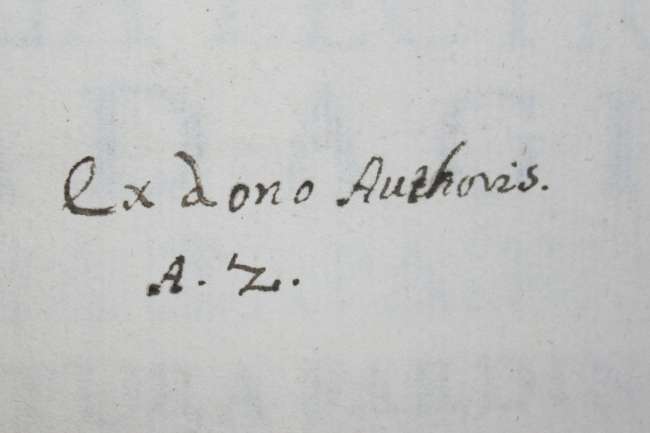 Ex dono Authoris.
A. Z.